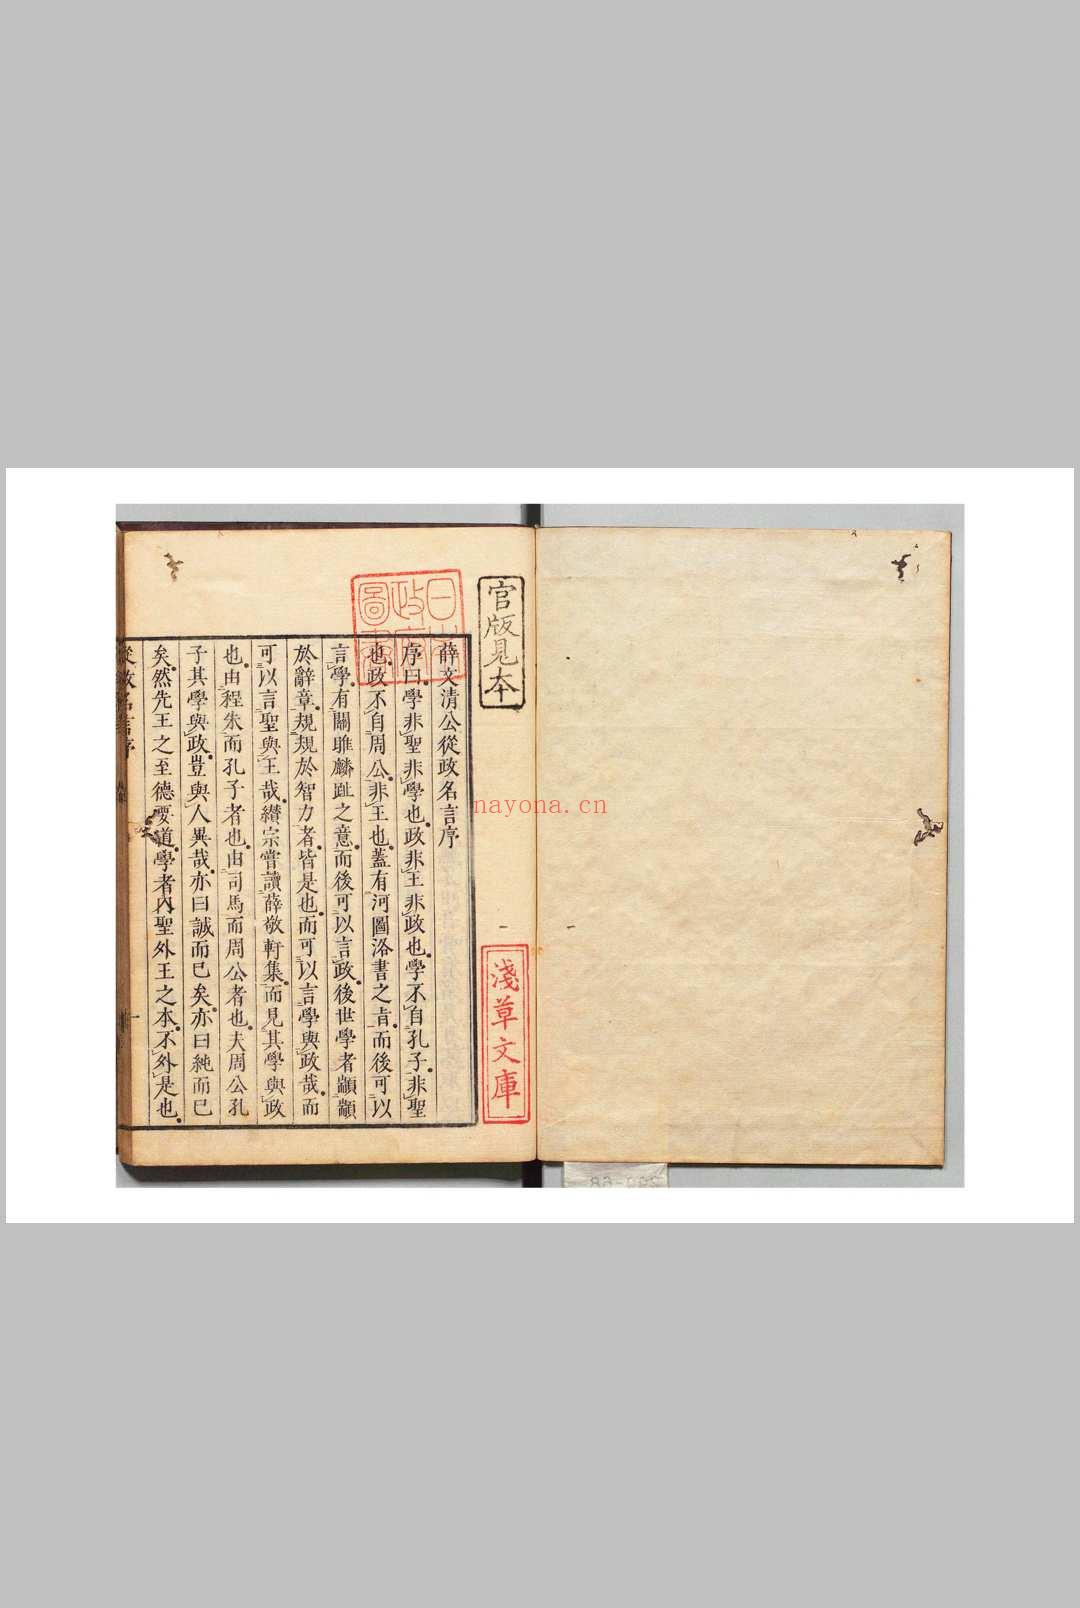 官版見本
日本
政府
圖書
淺草文庫
薛文清公從政名言序
序曰學非聖非學也政非王非政也學不自孔子非聖
也政不自周公非王也蓋有河圖洛書之旨而後可以
言學有關雎麟趾之意而後可以言政後世學者顓顓
於辭章規規於智力者皆是也而可以言學與政哉而
可以言聖與王哉纘宗嘗讀薛敬軒集而見其學與政
也由程朱而孔子者也由司馬而周公者也夫周公孔
子其學與政豈與人異哉亦曰誠而已矣亦曰純而已
矣然先王之至德要道學者內聖外王之本不外是也
從政名言序
一
nayona.cn